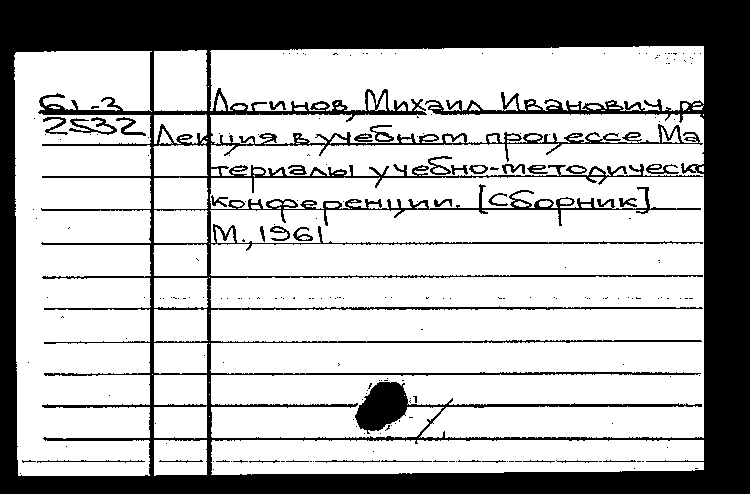 61-3 Логинов, Михаил Иванович, ре
2532 Лекция в учебном процессе. Ма
териалы учебно-методическо
конференции. [Сборник].
М., 1961.